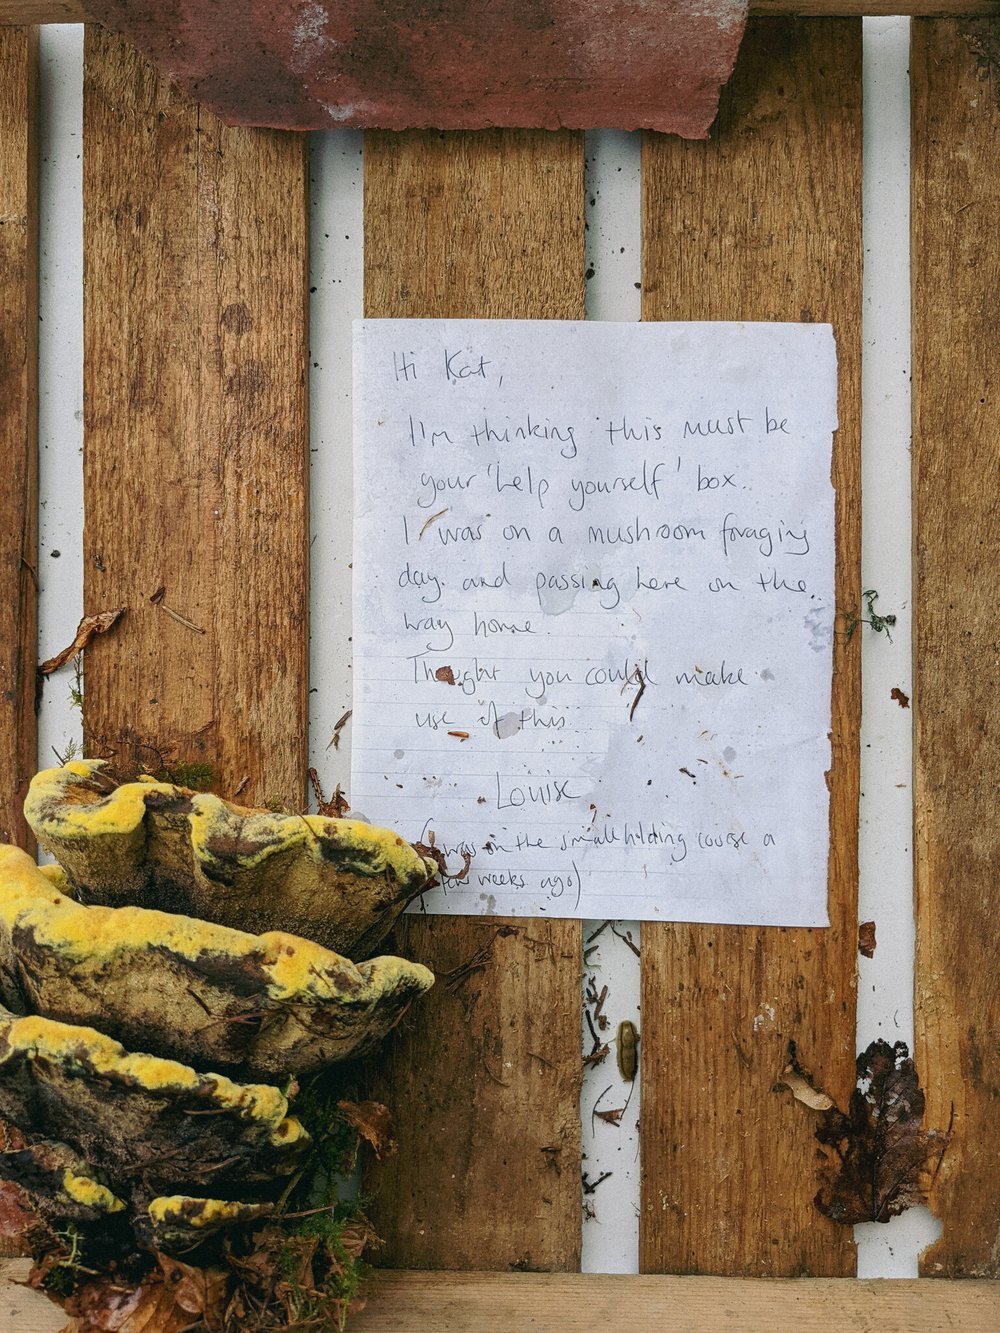 Hi Kat,
I'm thinking this must be
your 'help yourself' box.
I was on a mushroom foraging
day. and passing here on the
way home.
Thought you could make
use of this.
Louise
(was on the smallholding course a
few weeks ago)